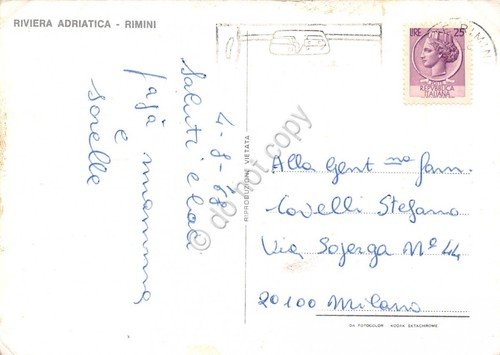 RIVIERA ADRIATICA - RIMINI
4-8-68
Saluti e baci
papà mamma
e
sorelle
RIPRODUZIONE VIETATA
LIRE 25
REPVBBLICA
ITALIANA
RIMINI
Alla Gent ma fam.
Covelli Stefano
Via Soferga Nº 44
20100 Milano
DA FOTOCOLOR KODAK EKTACHROME
© do not copy